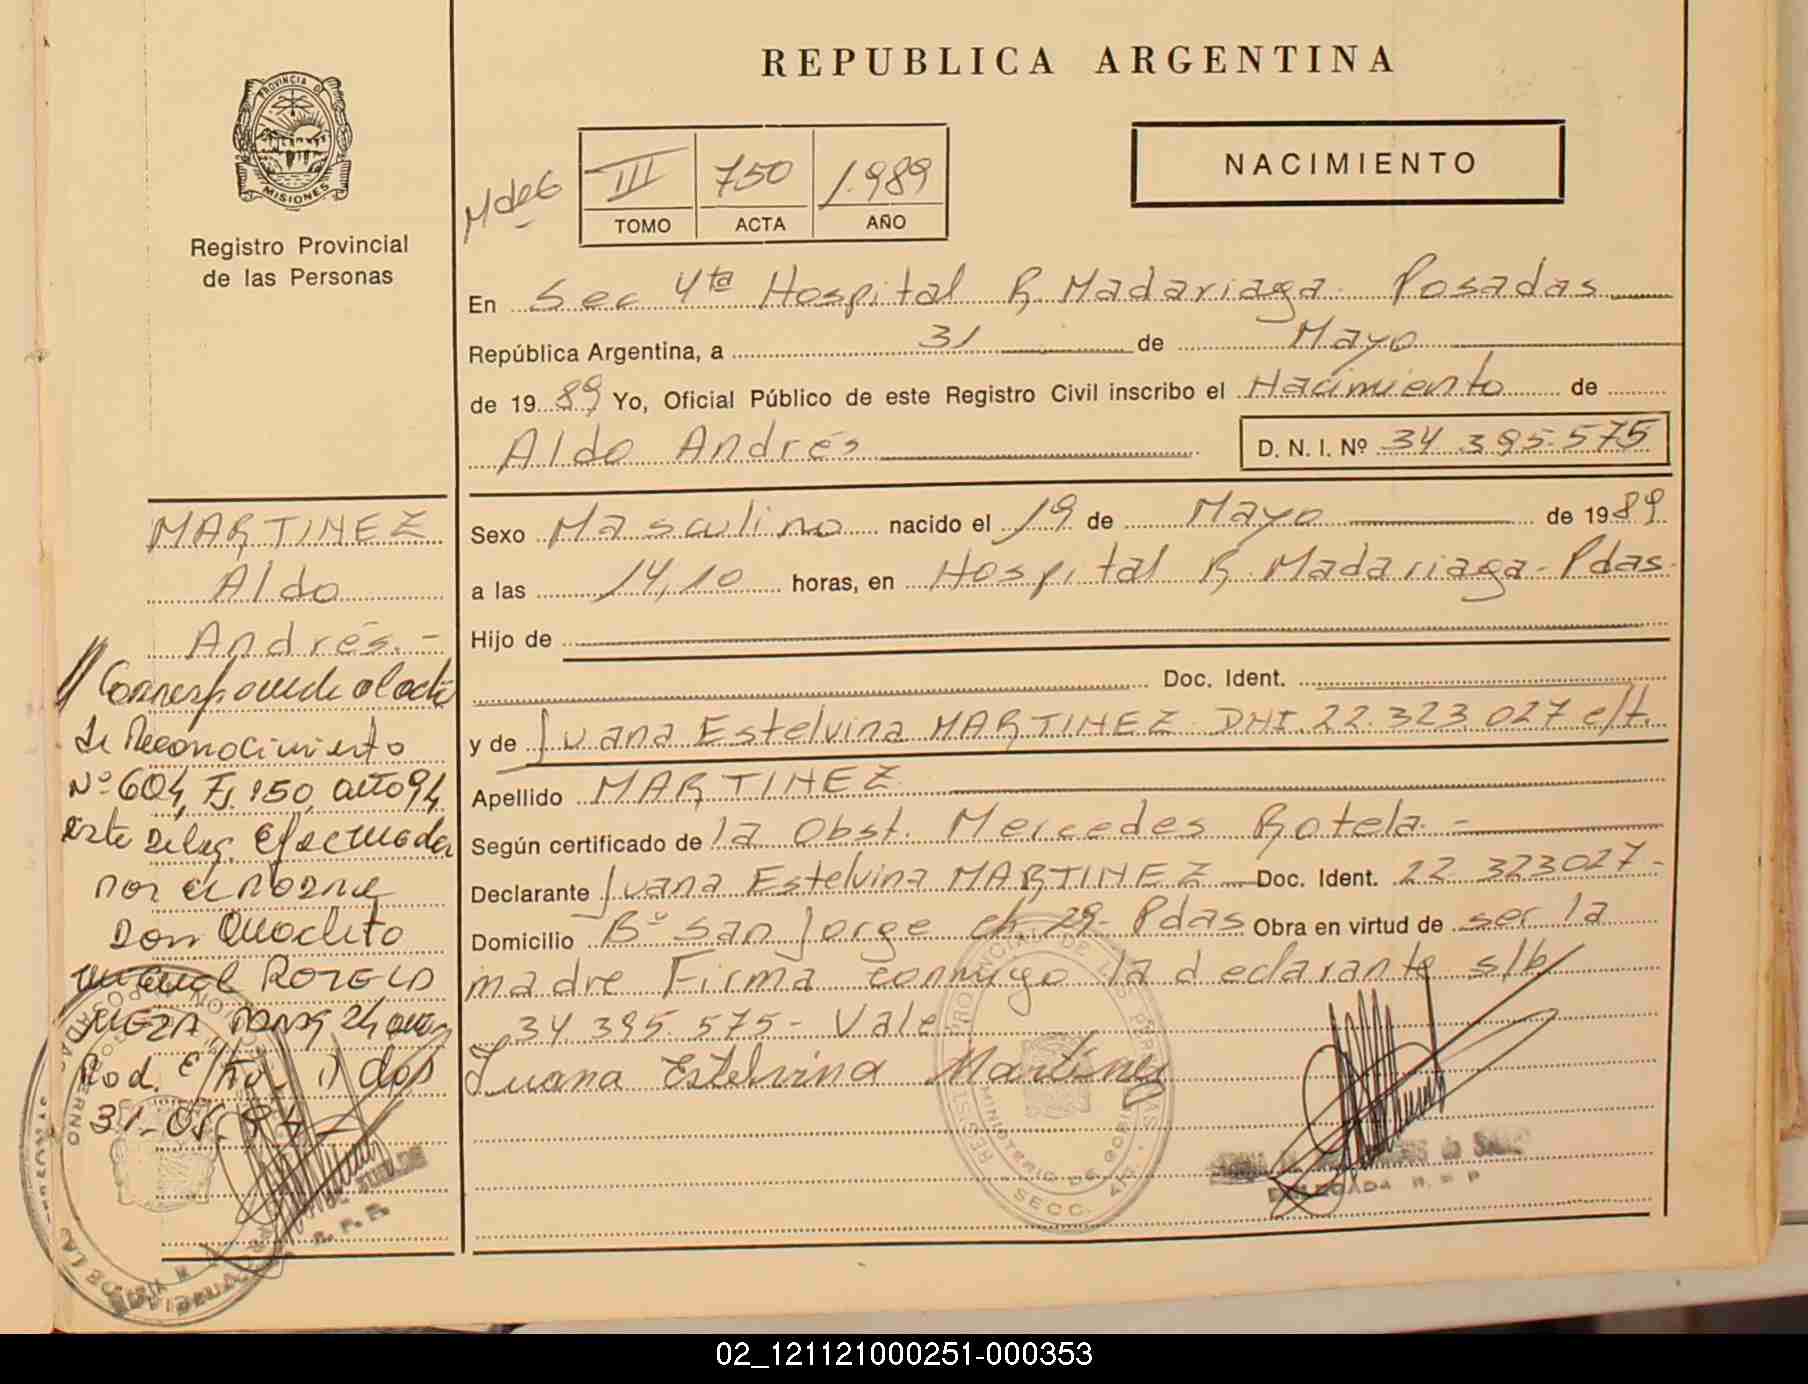 REPUBLICA ARGENTINA
NACIMIENTO
PROVINCIA D
MISIONES
Registro Provincial
de las Personas
III 750 1.989
TOMO ACTA AÑO
En Sec 4ta Hospital R. Madariaga Posadas
República Argentina, a 31 de Mayo
de 1989 Yo, Oficial Público de este Registro Civil inscribo el Nacimiento de
Aldo Andrés
D. N. I. Nº 34.395.575
Sexo Masculino nacido el 19 de Mayo de 1989
a las 14,10 horas, en Hospital R. Madariaga - Pdas.
Hijo de
Doc. Ident.
y de Juana Estelvina MARTINEZ DNI. 22.323.027 e/t.
Apellido MARTINEZ
Según certificado de la Obst. Mercedes Rotela. -
Declarante Juana Estelvina MARTINEZ Doc. Ident. 22 323027-
Domicilio Bº San Jorge ch 29- Pdas Obra en virtud de ser la
madre Firma conmigo la declarante s/b
34.395.575- Vale
Juana Estelvina Martinez
DELEGADA R. P. P.
MARTINEZ
Aldo
Andrés. -
Corresponde al acta
de Reconocimiento
Nº 604, Fs. 150, año 94
este Deleg. Efectuada
por el padre
Don
ROTELA
MEZA, 24 años
31-05-94
02_121121000251-000353